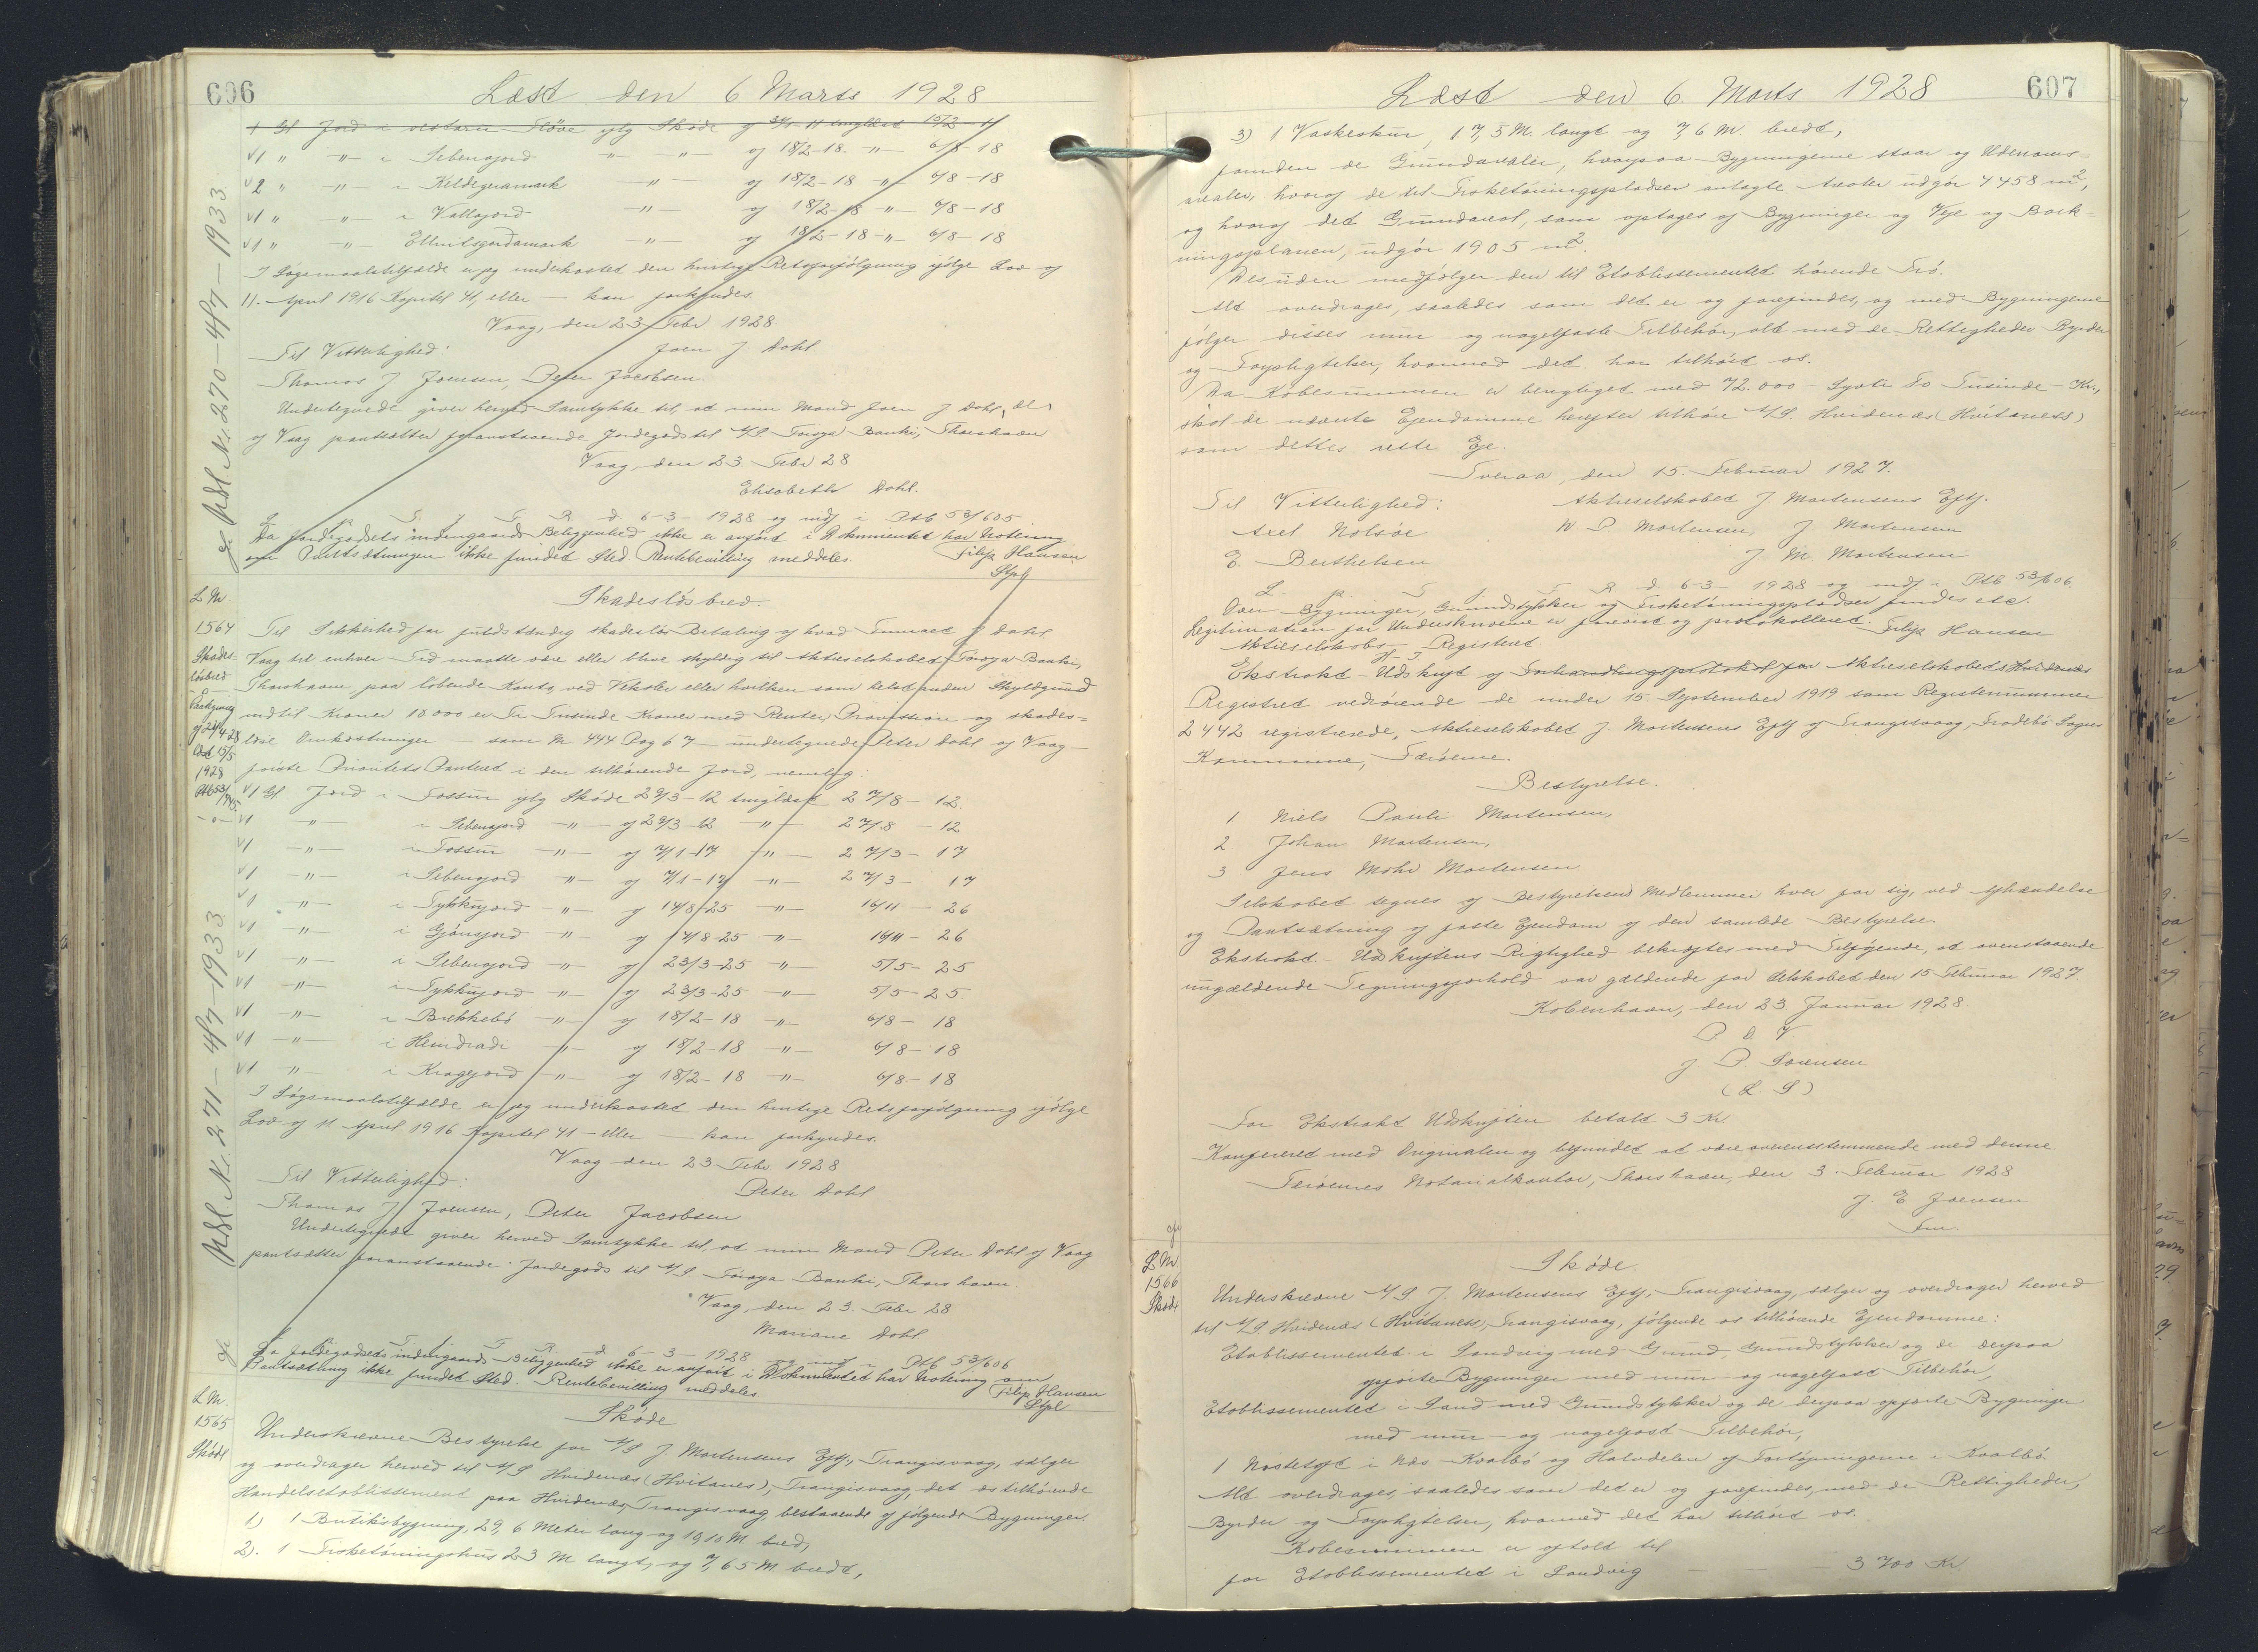 606
Læst den 6 Marts 1928
1 Gl Jord i vestaru Fløve iflg Skøde af 3/1-11 tinglæst 15/2-11
√1 " -"- i Sebensjord -"- -"- af 18/2-18 -"- 6/8-18
√2 " -"- i Keldegeramark -"- af 18/2-18 -"- 6/8-18
√1 " -"- i Vallajord -"- af 18/2-18 -"- 6/8-18
√1 " -"- -"- af 18/2-18 -"- 6/8-18
I Søgsmaalstilfælde er jeg underkastet den hurtige Retsforfølgning ifølge Lov af
11. April 1916 Kapitel 41, eller — kan forkyndes.
Vaag, den 23 Febr 1928.
Til Vitterlighed: Joen J. Dahl
Thomas J. Joensen, Peter Jacobsen.
Undertegnede giver herved Samtykke til, at min Mand Joen J Dahl,
af Vaag pantsætter foranstaaende Jordegods til A/S Føroya Banki, Thorshavn
Vaag, den 23 Febr 28
Elisabeth Dahl.
L. p. S. f. F. R. d. 6-3-1928 og indf i Ptb 53/605
Da Jordegodsets indengaards Beliggenhed ikke er anført i Dokumentet har Notering
om Pantsætningen ikke fundet Sted. Rentebevilling meddeles. Filip Hansen
Stpl
gf Afl Nr. 270 - 4/7 - 1933
L Nr.
1564
Skades-
løsbrev
Paategning
af 24/4-28
læst 15/5
1928
Ptb 53/745.
-o-
Skadesløsbrev.
Til Sikkerhed for fuldstændig skadesløs Betaling af hvad Dahl
Vaag til enhver Tid maatte være eller blive skyldig til Aktieselskabet Føroya Banki,
Thorshavn paa løbende Konto, ved Veksler eller hvilken som helst anden Skyldgrund
indtil Kroner 10000 er Ti Tusinde Kroner med Renter, Provision og skades=
løse Omkostninger som M 444 Dag 67 undertegnede Peter Dahl af Vaag
første Prioritets Panteret i den tilhørende Jord, nemlig:
√1 Gl Jord i Tossur iflg Skøde 29/3-12 tinglæst 27/8-12.
√1 -"- i Sebensjord -"- af 29/3-12 -"- 27/8-12
√1 -"- i Tossur -"- af 7/1-17 -"- 27/3-17
√1 -"- i Sebensjord -"- af 7/1-17 -"- 27/3-17
√1 -"- i Tykkujord -"- af 14/8-25 -"- 16/11-26
√1 -"- i Gjónsjord -"- af 14/8-25 -"- 16/11-26
√1 -"- i Sebensjord -"- af 23/3-25 -"- 5/5-25
√1 -"- i Tykkujord -"- af 23/3-25 -"- 5/5-25
√1 -"- i Brekkebø -"- af 18/2-18 -"- 6/8-18
√1 -"- i Heindradi -"- af 18/2-18 -"- 6/8-18
√1 -"- i Kragejord -"- af 18/2-18 -"- 6/8-18
I Søgsmaalstilfælde er jeg underkastet den hurtige Retsforfølgning ifølge
Lov af 11 April 1916 Kapitel 41 — eller — kan forkyndes.
Vaag den 23 Febr 1928
Til Vitterlighed: Peter Dahl
Thomas J Joensen, Peter Jacobsen
Undertegnede giver herved Samtykke til, at min Mand Peter Dahl af Vaag
pantsætter foranstaaende Jordegods til A/S Føroya Banki, Thorshavn.
Vaag, den 23. Febr 28
Mariane Dahl
L. p. S. f. F. R. d. 6-3-1928 og indf i Ptb 53/606
Da Jordegodsets indengaards Beliggenhed ikke er anført i Dokumentet har Notering om
Pantsætning ikke fundet Sted. Rentebevilling meddeles. Filip Hansen
Stpl
gf Afl Nr. 271 - 4/7 - 1933
L Nr.
1565
Skøde
Skøde
Underskrevne Bestyrelse for A/S J. Mortensens Eftf., Trangisvaag, sælger
og overdrager herved til A/S Hvidenæs (Hvitanes), Trangisvaag, det os tilhørende
Handelsetablissement paa Hvidenæs, Trangisvaag bestaaende af følgende Bygninger.
1) 1 Butiksbygning, 29,6 Meter lang og 10,10 M. bred,
2). 1 Fisketøningshus 23 M langt, og 7,65 M. bredt,
607
Læst den 6. Marts 1928
3) 1 Vaskeskur, 17,5 M. langt og 7,6 M. bredt,
foruden de Grundarealer, hvorpaa Bygningerne staar og Udenoms=
arealer, hvoraf de til Fisketørringspladser anlagte Arealer udgør 4458 m²,
og hvoraf det Grundareal, som optages af Bygninger og Veje og Bark=
ningsplanen, udgør 1905 m².
Desuden medfølger den til Etablissementet hørende Trø.
Alt overdrages, saaledes som det er og forefindes, og med Bygningerne
følger disses mur- og nagelfaste Tilbehør, alt med de Rettigheder Byrder
og Forpligtelser, hvormed det har tilhørt os.
Da Købesummen er berigtiget med 72.000 - Syvti To Tusinde - Kr.,
skal de nævnte Ejendomme herefter tilhøre A/S. Hvidenæs (Hvítaness)
som dettes rette Eje.
Tveraa, den 15. Februar 1927.
Til Vitterlighed: Aktieselskabet J Mortensens Eftf.
Axel Nolsøe N P. Mortensen, J. Mortensen
E. Berthelsen J. M. Mortensen
L. p. S. f. F. R. d. 6-3-1928 og indf i Ptb 53/606.
Over Bygninger, Grundstykker og Fisketørringspladser findes etc.
Legitimation for Underskriverne er forevist og protokolleret. Filip Hansen
Aktieselskabs-Registret
Ekstrakt-Udskrift af Forhandlingsprotokol for Aktieselskabets Hvidenæs
Registret vedrørende de under 15. September 1919 som Registernummer
2442 registrerede, Aktieselskabet J. Mortensens Eftf af Trangisvaag, Frodebø Sogns
Kommune, Færøerne.
Bestyrelse.
1 Niels Pauli Mortensen,
2. Johan Mortensen,
3 Jens Mohr Mortensen
Selskabet tegnes af Bestyrelsens Medlemmer hver for sig, ved Afhændelse
og Pantsætning af faste Ejendom af den samlede Bestyrelse.
Ekstrakt-Udskriftens Rigtighed bekræftes med Tilføjende, at ovenstaaende
angældende Tegningsforhold var gældende for Selskabet den 15 Februar 1927.
København, den 23 Januar 1928.
P. V. V.
J P. Sørensen
(L. S)
For Ekstrakt Udskriften betalt 3 Kr
Konfereret med Originalen og befundet at være overensstemmende med denne.
Færøernes Notarialkontor, Thorshavn, den 3. Februar 1928
J. E Joensen
Fm
gf
L Nr
1566
Skøde
Skøde.
Underskrevne A/S J. Mortensens Eftf., Trangisvaag, sælger og overdrager herved
til A/S. Hvidenæs (Hvítaness), Trangisvaag, følgende os tilhørende Ejendomme:
Etablissementet i Sandvig med Grund, Grundstykker og de derpaa
opførte Bygninger med mur- og nagelfast Tilbehør,
Etablissementet i Sand med Grundstykker og de derpaa opførte Bygninger
med mur- og nagelfast Tilbehør,
1 Nøstetoft i Nes-Kvalbø og Halvdelen af Fortøjningerne i Kvalbø.
Alt overdrages, saaledes som det er og forefindes, med de Rettigheder,
Byrder og Forpligtelser, hvormed det har tilhørt os.
Købesummen er aftalt til
for Etablissementet i Sandvig — — 3700 Kr.